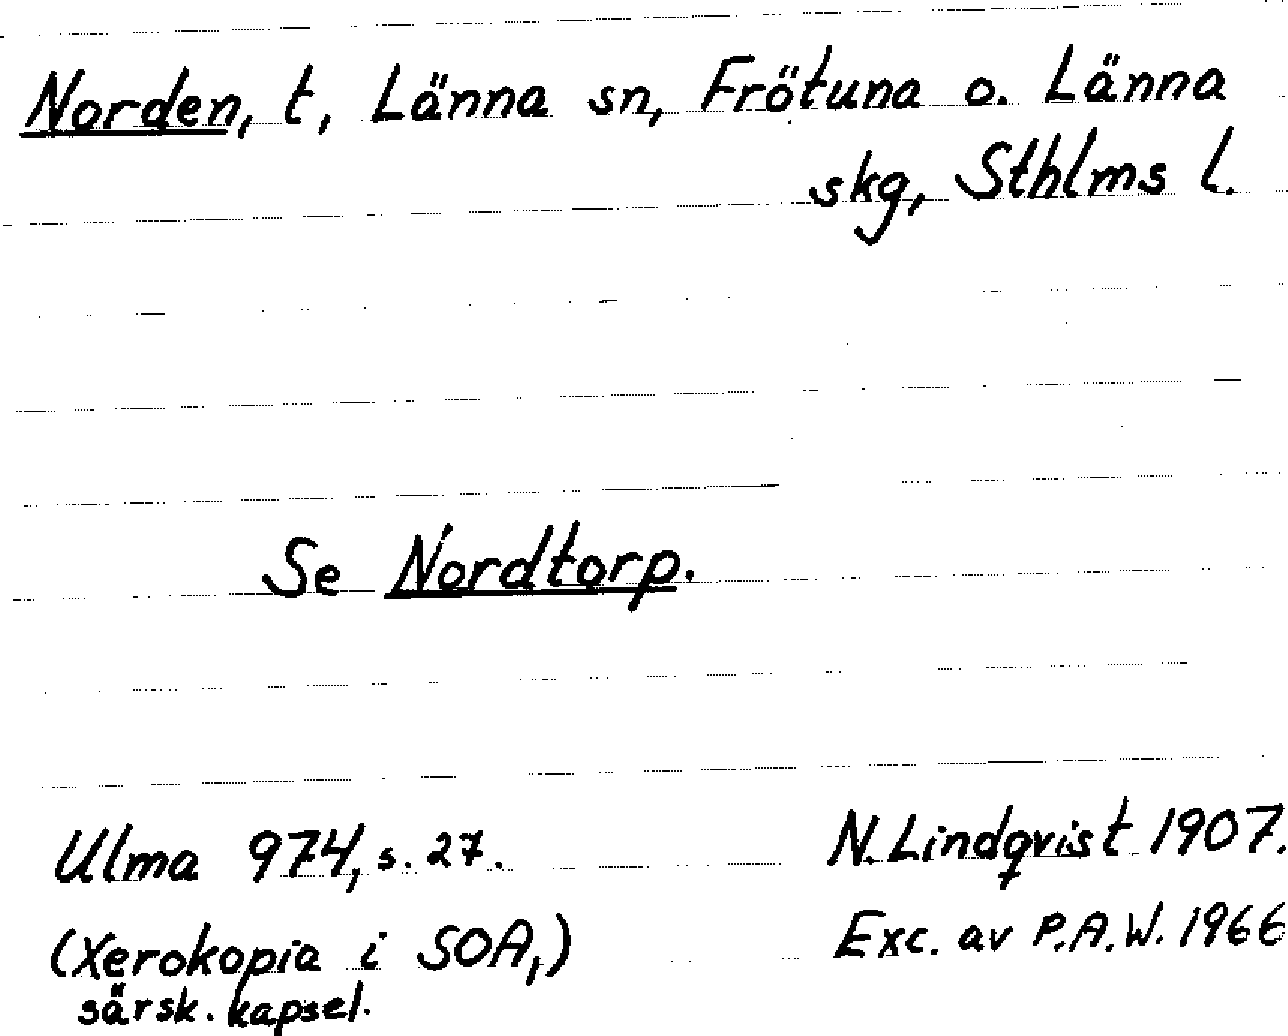 Norden, t, Länna sn, Frötuna o. Länna
skg, Sthlms l.
Se Nordtorp.
Ulma 974, s. 27.
N. Lindqvist 1907.
(Xerokopia i SOA,)
särsk. kapsel.
Exc. av P.A.W. 1966